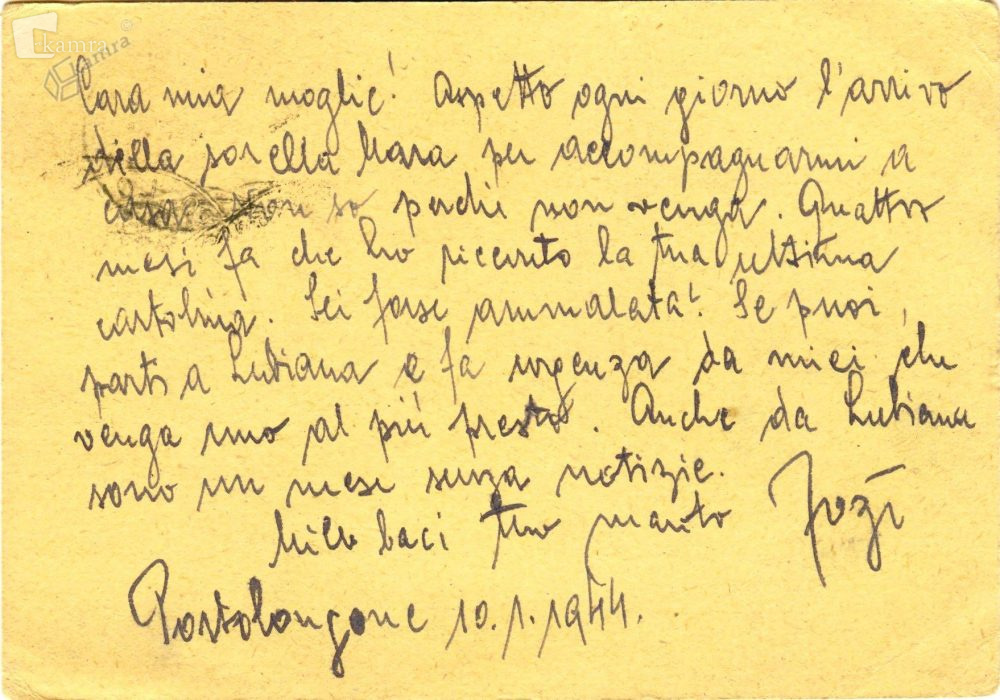 kamra
kamra
Cara mia moglie! Aspetto ogni giorno l'arrivo
della sorella Mara per accompagnarmi a
casa. Non so perchè non venga. Quattro
mesi fa che ho ricevuto la tua ultima
cartolina. Sei forse ammalata! Se puoi,
parti a Lubiana e fa urgenza da miei che
venga uno al più presto. Anche da Lubiana
sono un mese senza notizie.
Mille baci tuo marito Joži
Portolongone 10.1.1944.